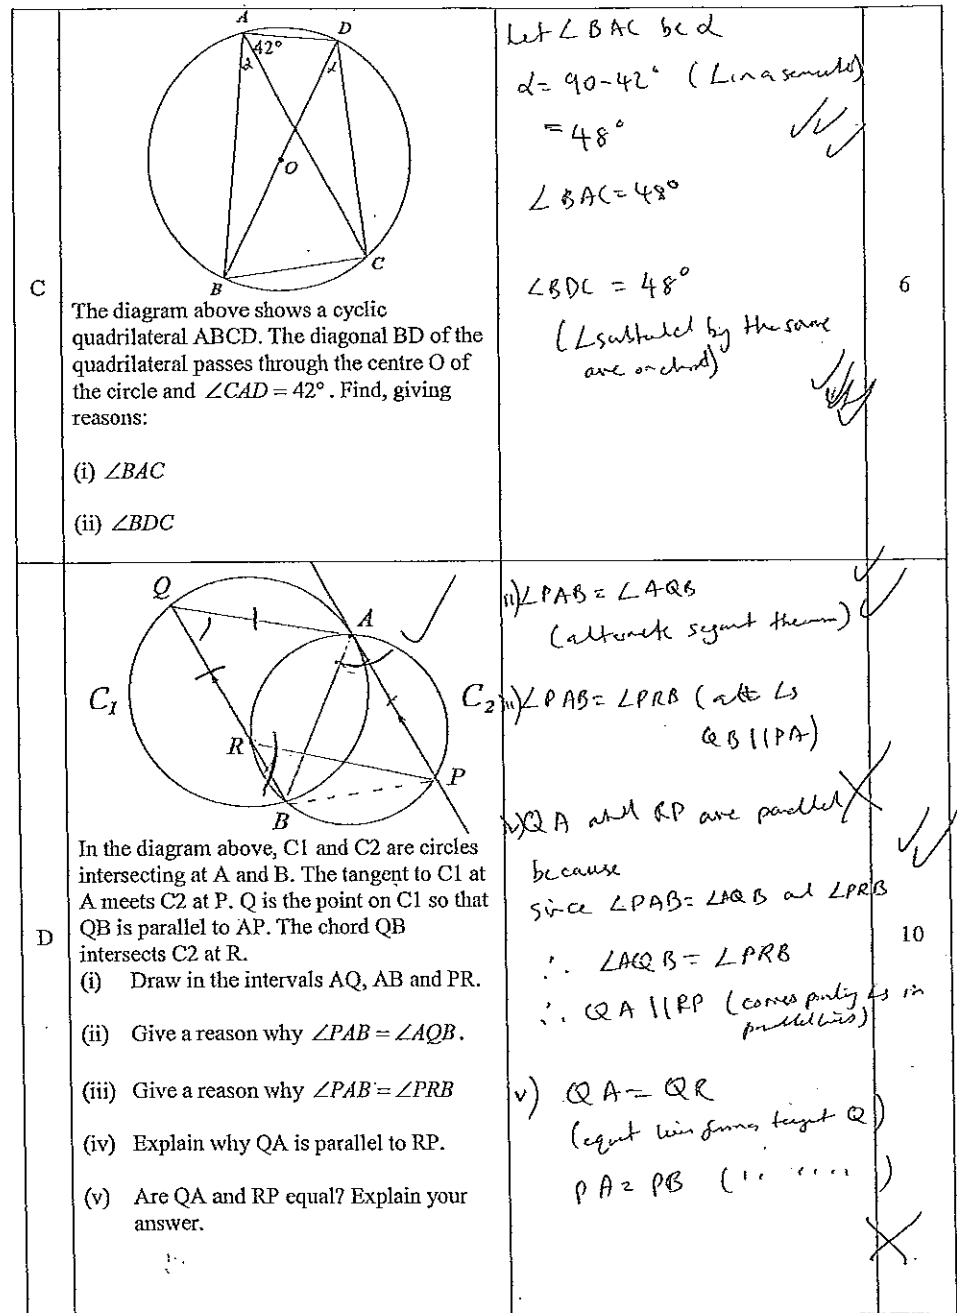 A
D
42°
α
α
O
B
C
C
The diagram above shows a cyclic
quadrilateral ABCD. The diagonal BD of the
quadrilateral passes through the centre O of
the circle and ∠CAD = 42° . Find, giving
reasons:
(i) ∠BAC
(ii) ∠BDC
Let ∠BAC be α
α = 90-42° (∠ in a
= 48°
∠BAC = 48°
∠BDC = 48°
by the same
arc or chord)
6
Q
A
C1
C2
R
P
B
D
In the diagram above, C1 and C2 are circles
intersecting at A and B. The tangent to C1 at
A meets C2 at P. Q is the point on C1 so that
QB is parallel to AP. The chord QB
intersects C2 at R.
(i) Draw in the intervals AQ, AB and PR.
(ii) Give a reason why ∠PAB = ∠AQB.
(iii) Give a reason why ∠PAB = ∠PRB
(iv) Explain why QA is parallel to RP.
(v) Are QA and RP equal? Explain your
answer.
ii) ∠PAB = ∠AQB
(alternate segment
∠PAB = ∠PRB (alt ∠s
QB || PA)
QA and RP are parallel
because
since ∠PAB = ∠AQB and ∠PRB
∴ ∠AQB = ∠PRB
∴ QA || RP ( ∠s in
v) QA = QR
Q)
PA = PB (
10